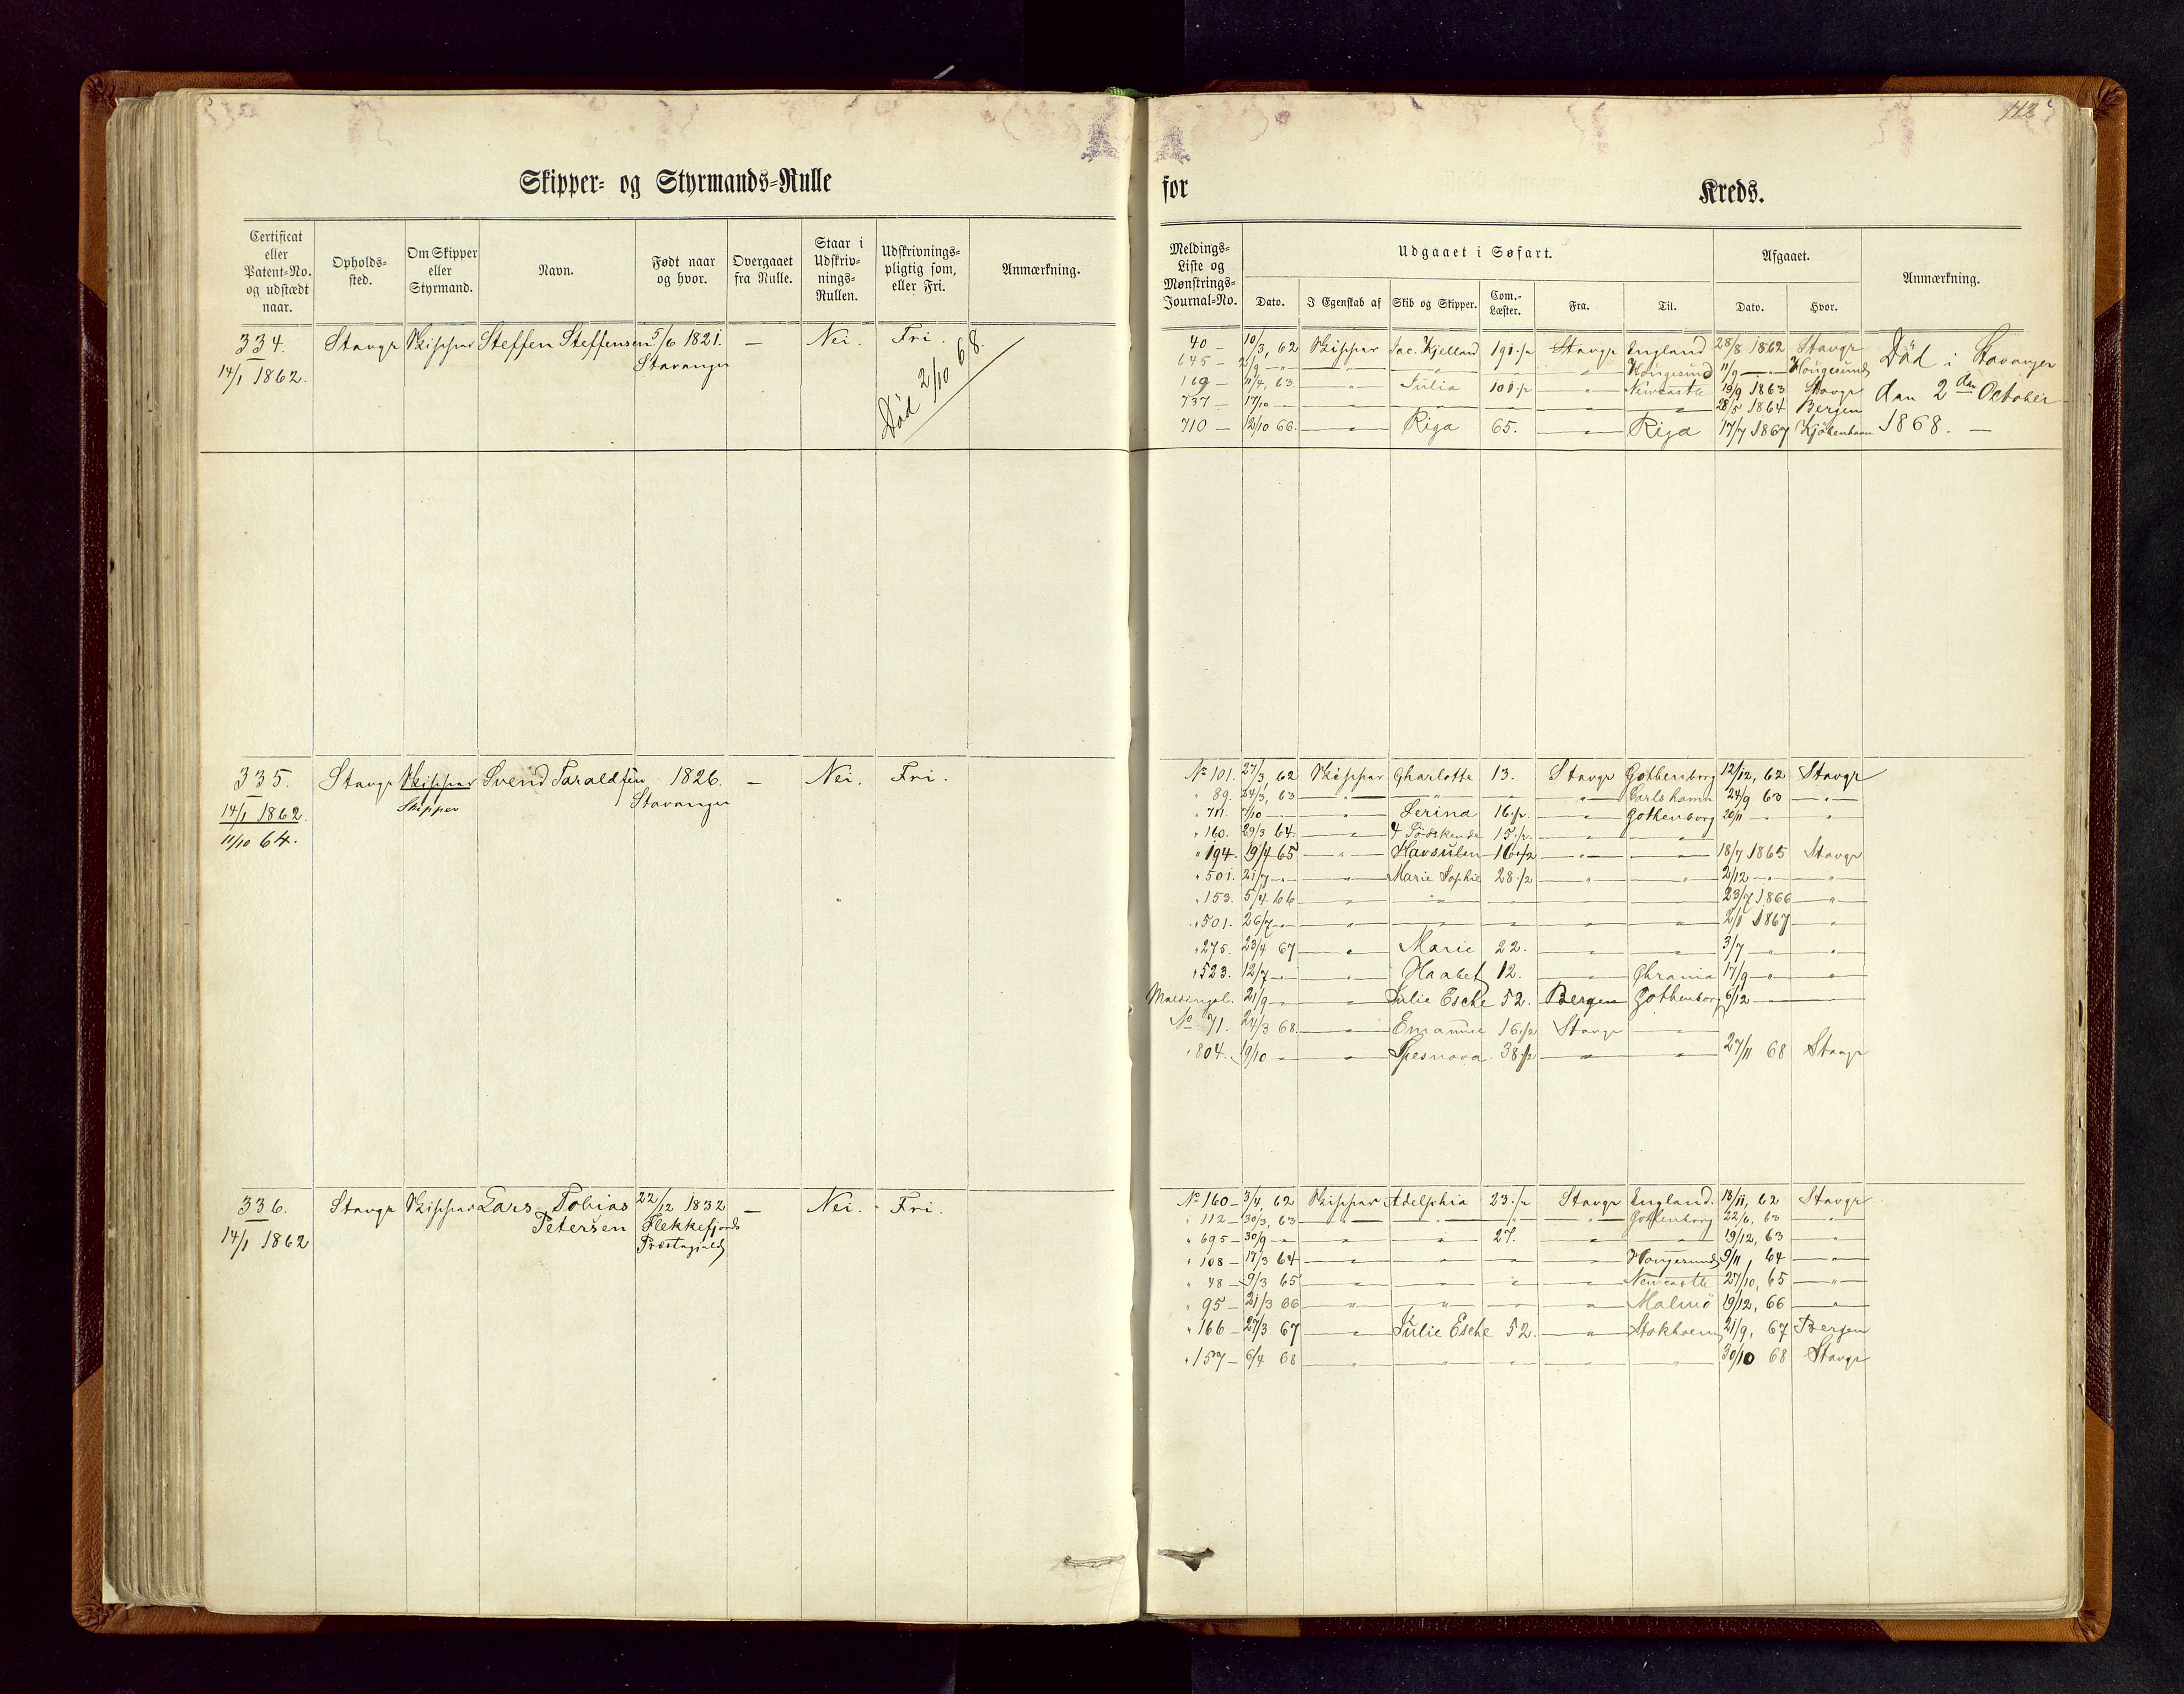 113
Skipper- og Styrmands-Rulle
for Kreds.
Certificat eller Patent-No. og udstædt naar. Opholds-sted. Om Skipper eller Styrmand. Navn. Født naar og hvor. Overgaaet fra Rulle. Staar i Udskriv-nings-Rullen. Udskrivnings-pligtig som, eller Fri. Anmærkning.
334. Stavgr Skipper Steffen Steffensen 5/6 1821. — Nei. Fri.
14/1 1862. Stavanger
Död 2/10 68.
335. Stavgr Skipper Svend Taraldsen 1826. — Nei. Fri.
14/1 1862. Skipper Stavanger
11/10 64.
336. Stavgr Skipper Lars Tobias 22/12 1832 — Nei. Fri.
14/1 1862 Petersen Flekkefjords
Præstegjeld
Meldings-Liste og Mønstrings-Journal-No. Udgaaet i Søfart. Afgaaet. Anmærkning.
Dato. I Egenskab af Skib og Skipper. Com.-Læster. Fra. Til. Dato. Hvor.
40 — 10/3, 62 Skipper Jac. Kjelland 191 1/2 Stavgr England 28/8 1862 Stavgr Död i Stavanger
645 — 2/9 — " — " — " — " — " Hougesund 11/9 — " — Hougesund
169 — 11/4, 63 — " — Julia 101 1/2 — " — Newcastle 19/9 1863 Stavgr den 2den October
737 — 17/10 — " — " — " — " — " 28/5 1864 Bergen
710 — 12/10 66. — " — Riga 65. — " — Riga 17/7 1867 Kjöbenhavn 1868. —
No 101. 27/3 62 Skipper Charlotte 13. Stavgr Gothenborg 12/12, 62 Stavgr
" 89. 24/3, 63 — " — " — " — " — Carlshamn 24/9 63 — " —
" 711. 7/10 — " — Serina 16 1/2 — " — Gothenborg 20/11 — " — "
" 160. 29/3 64 — " — 4 Södskende 15 1/2 — " — "
" 194. 19/4 65 — " — Havsulen 16 1/2 — " — " — 18/7 1865 Stavgr
" 501. 21/7 — " — Marie Sophie 28 1/2 — " — " — 2/12 — " — "
" 153. 5/4 66 — " — " — " — " — " — 23/7 1866 — " —
" 501. 26/7 — " — " — " — " — " — 2/1 1867 — " —
" 275. 23/4 67 — " — Marie 22. — " — " — 3/7 — " — "
" 523. 12/7 — " — Haabet 12. — " — Chrania 17/9 — " — "
Meldingsl. 21/9 — " — Julie Esche 52. Bergen Gothenborg 6/12 — " —
No 71. 24/3 68 — " — Emanuel 16 1/2 Stavgr — " —
" 804. 19/10 — " — Spesnova 38 1/2 — " — " — 27/11 68 Stavgr
No 160 — 3/4, 62 Skipper Adelphia 23 1/2 Stavgr England. 13/11, 62 Stavgr
" 112 — 30/3, 63 — " — " — " — " — Gothenborg 22/6, 63 — " —
" 695 — 30/9 — " — " — 27. — " — " — 19/12, 63 — " —
" 108 — 17/3 64 — " — " — " — " — Hougesund 9/11, 64 — " —
" 48 — 9/3 65 — " — " — " — " — Newcastle 27/10, 65 — " —
" 95 — 21/3 66 — " — " — " — " — Malmö 19/12, 66 — " —
" 166 — 27/3 67 — " — Julie Esche 52. — " — Stokholm 21/9, 67 Bergen
" 157 — 6/4 68 — " — " — " — " — " — 30/10 68 Stavgr